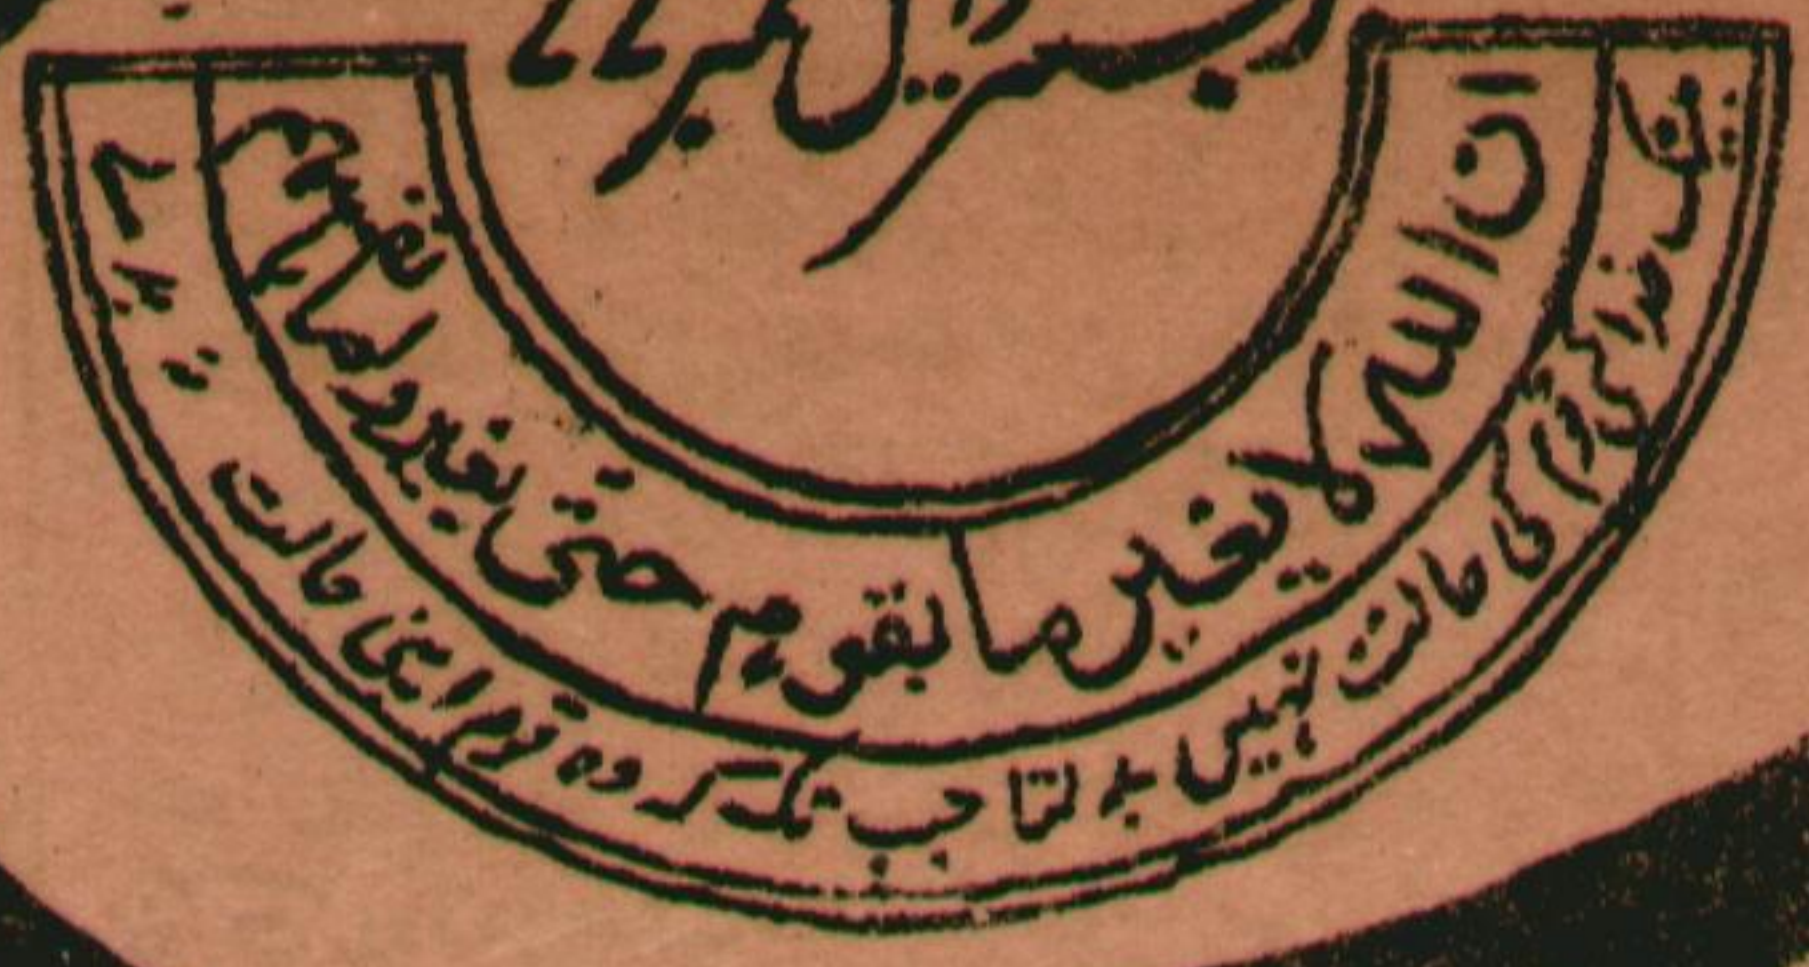 رجسٹرڈ ایل نمبر ۷۷
ان اللہ لا یغیر ما بقوم حتی یغیروا ما بانفسہم
خدا کسی قوم کی حالت نہیں بدلتا جب تک کہ وہ قوم اپنی حالت نہ بدلے